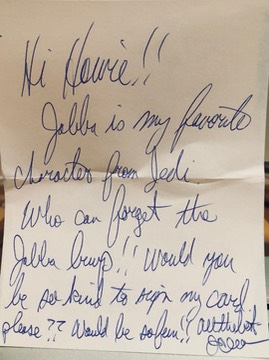 Hi Howie!!
Jabba is my favorite
character from Jedi.
Who can forget the
Jabba burp!! Would you
be so kind to sign my card
please?? Would be so fun!! All the best